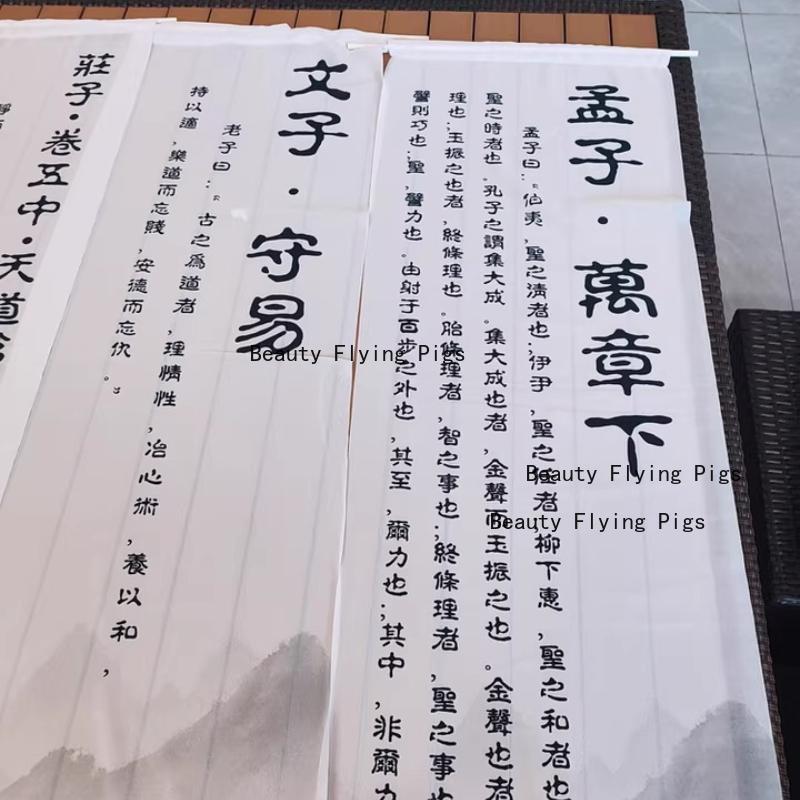 孟子·萬章下
孟子曰：“伯夷，聖之清者也；伊尹，聖之任者；柳下惠，聖之和者也
聖之時者也。孔子之謂集大成。集大成也者，金聲而玉振之也。金聲也者
理也；玉振之也者，終條理也。始條理者，智之事也；終條理者，聖之事也
譬則巧也；聖，譬力也。由射于百步之外也，其至，爾力也；其中，非爾力
文子·守易
老子曰：“古之為道者，理情性，冶心術，養以和，
持以適，樂道而忘賤，安德而忘仇。”
莊子·卷五中·天道
Beauty Flying Pigs
Beauty Flying Pigs
Beauty Flying Pigs